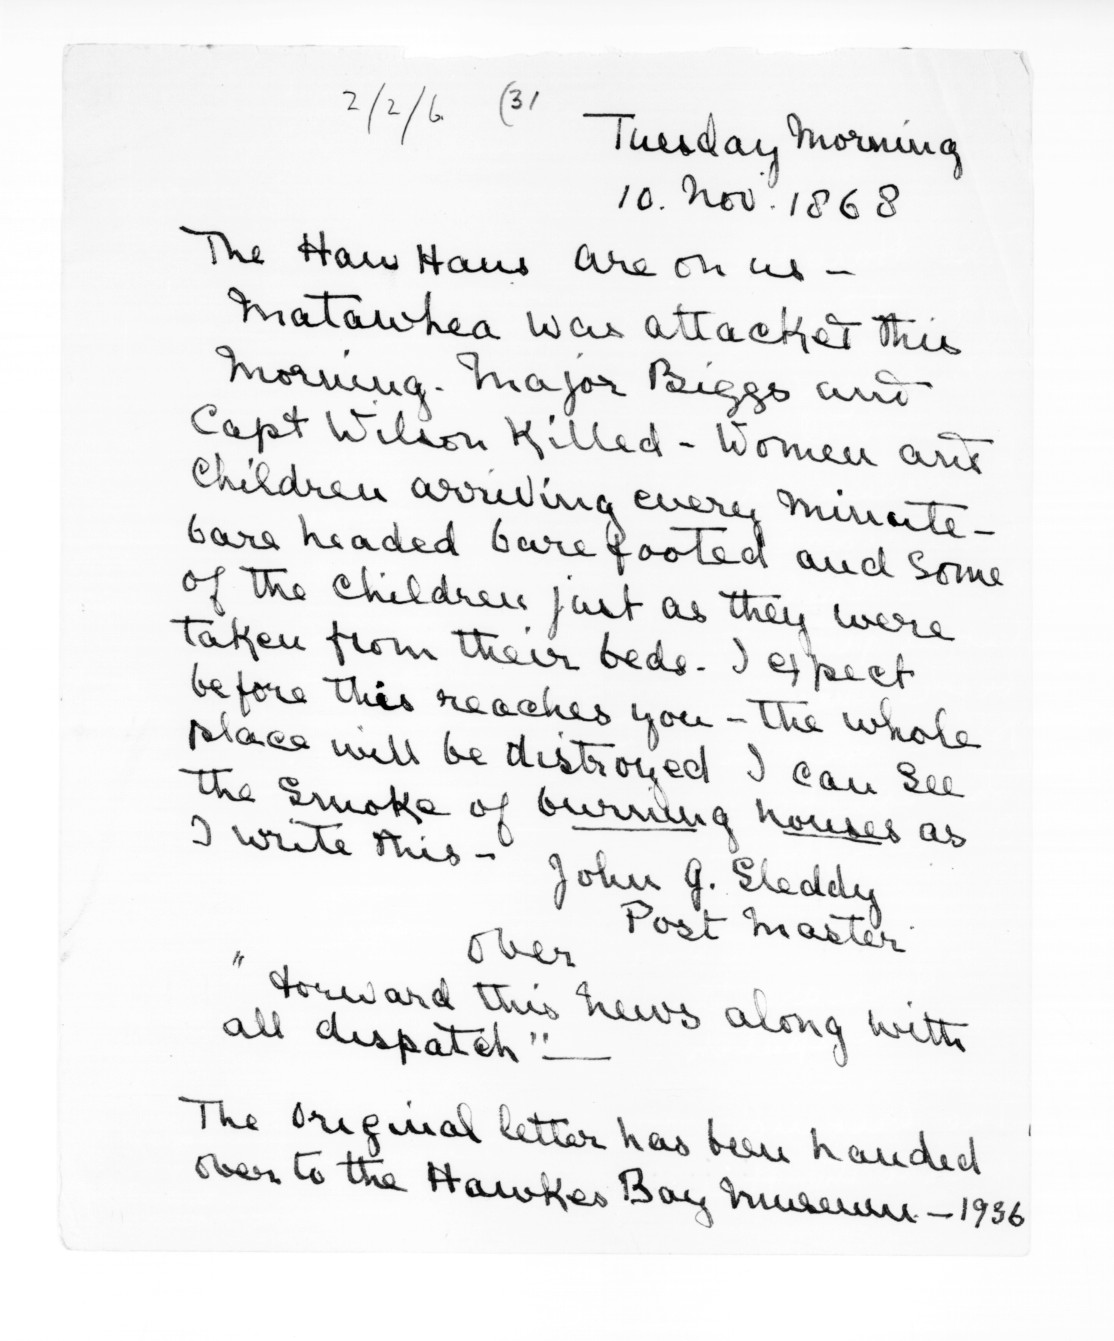 2/2/6 (31
Tuesday Morning
10. Nov. 1868
The Haw Haws are on us –
Matawhea was attacked this
Morning. Major Biggs and
Capt Wilson Killed – Women and
Children arriving every minute –
bare headed bare footed and some
of the children just as they were
taken from their beds. I expect
before this reaches you – the whole
place will be distroyed I can see
the smoke of burning houses as
I write this –
John G. Sleddy
Post Master
over
" forward this news along with
all dispatch" —
The original letter has been handed
over to the Hawkes Bay Museum – 1936